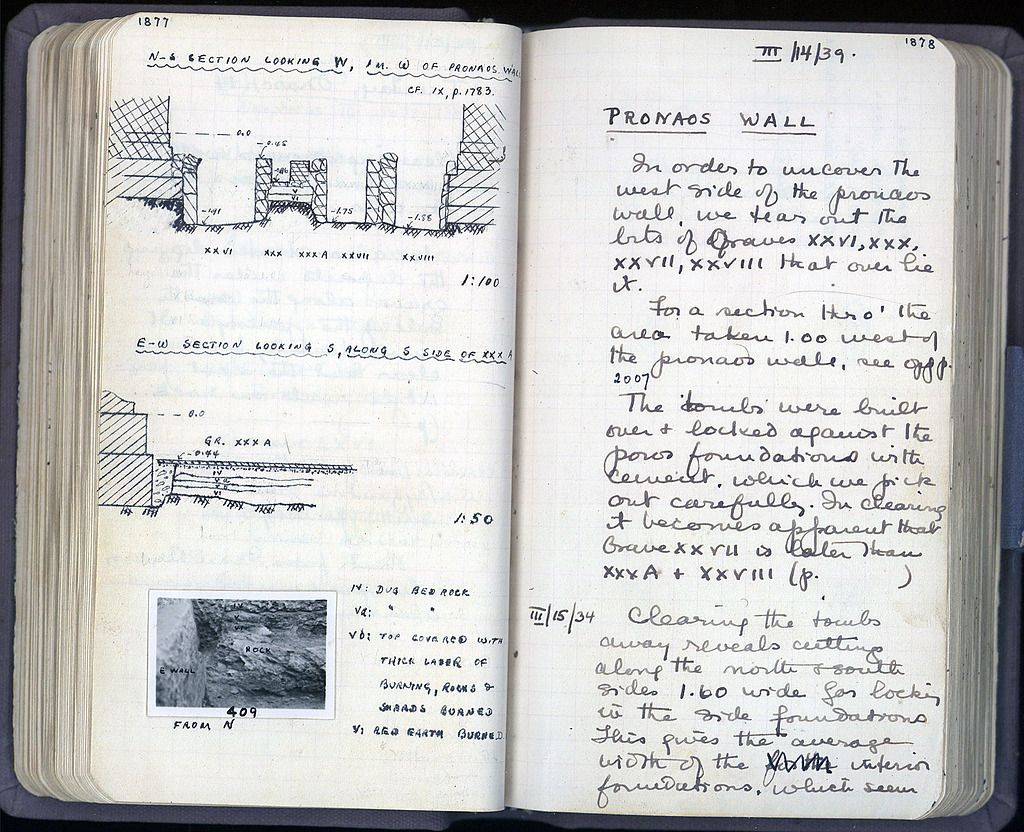 1877
N-S SECTION LOOKING W, 1M. W OF PRONAOS WALL
CF. IX, p. 1783.
0.0
-0.45
-1.91
-1.75
-1.88
XXVI XXX XXXA XXVII XXVIII
1:100
E-W SECTION LOOKING S, ALONG S SIDE OF XXX A
0.0
GR. XXX A
-0.44
IV
Va
Vb
VI
1:50
IV: DUG BEDROCK
Va: " "
Vb: TOP COVERED WITH
THICK LAYER OF
BURNING, ROCKS &
SHARDS BURNED
V: RED EARTH BURNED
ROCK
E WALL
409
FROM N
1878
III/14/39.
PRONAOS WALL
In order to uncover the
west side of the pronaos
wall, we tear out the
bits of Graves XXVI, XXX,
XXVII, XXVIII that over lie
it.
For a section thro' the
area taken 1.00 west of
the pronaos wall, see opp p.
2007
The tombs were built
over & locked against the
poros foundations with
cement, which we pick
out carefully. In clearing
it becomes apparent that
Grave XXVII is later than
XXXA + XXVIII (p. )
III/15/34
Clearing the tombs
away reveals cutting
along the north & south
sides 1.60 wide for locking
in the side foundations
This gives the average
width of the interior
foundations, which seem